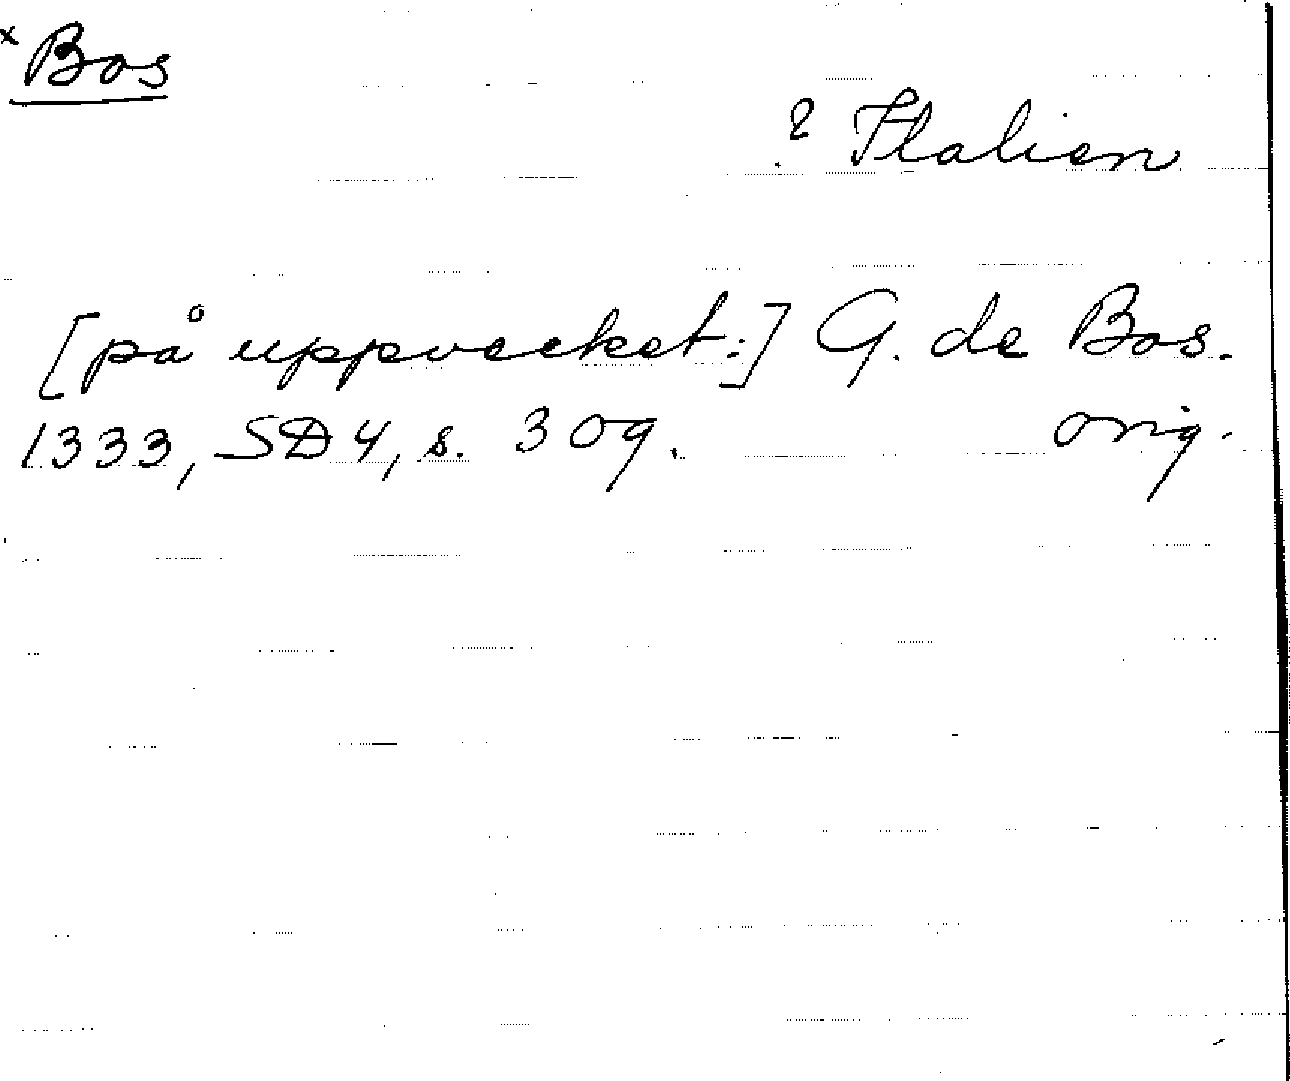 x Bos
? Italien
[på uppvecket:] G. de Bos.
1333, SD 4, s. 309. orig.